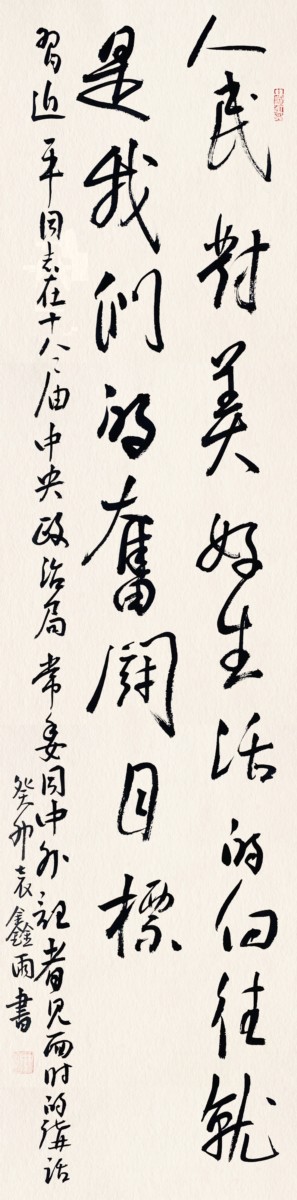 人民對美好生活的向往就
是我們的奮鬪目標
習近平同志在十八届中央政治局常委同中外記者見面时的講話
癸卯袁鑫雨書